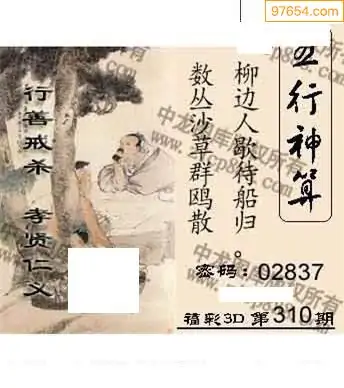 97654.com
五行神算
柳边人歇待船归。
数丛沙草群鸥散
行善戒杀 孝贤仁义
密码：02837
福彩3D 第310期